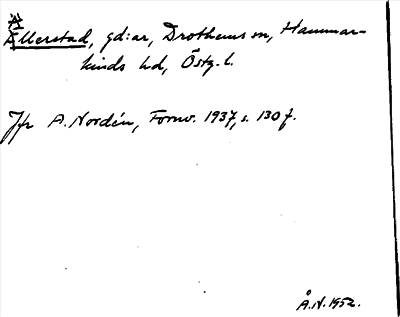 Ällerstad, gd:ar, Drothems sn, Hammar-
kinds hd, Östg. l.
Jfr A. Nordén, Fornv. 1937, s. 130 f.
Å.N. 1952.